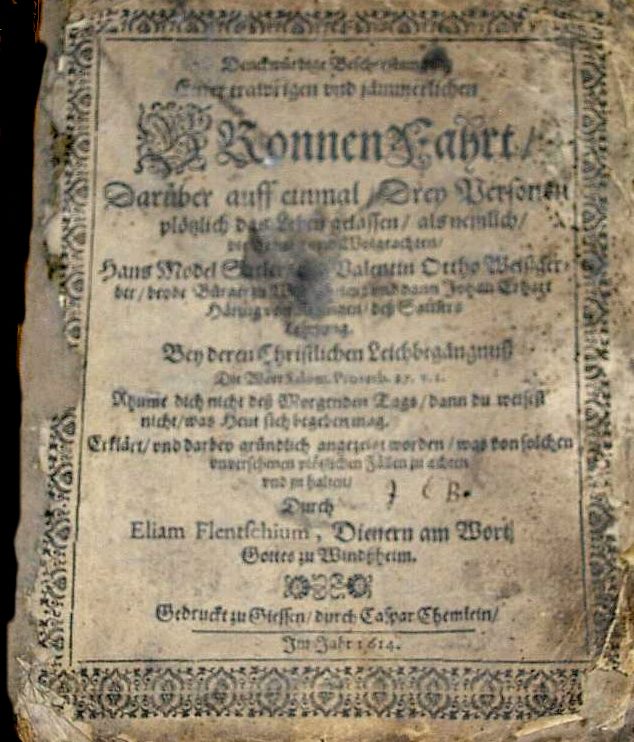 Denckwürdige Beschreibung
Einer trawrigen vnd jämmerlichen
BRonnenFahrt /
Darüber auff einmal / Drey Personen
plötzlich das Leben gelassen / als nemlich /
Wolgeachten /
Hans Model Valentin Ottho Weißger-
ber / beyde Bürger zu vnd dann Johan Erhart
Härtig von deß Sattlers
Lehrjung.
Bey deren Christlichen Leichbegängnuß
Die Wort Salom. Proverb. 27. v. 1.
Rhüme dich nicht deß Morgenden Tags / dann du weissest
nicht / was Heut sich begeben mag.
Erklärt / vnd darbey gründlich angezeigt worden / was von solchen
vnversehenen plötzlichen Fällen zu achten
vnd zu halten /
Durch
Eliam Flentschium, Dienern am Wort
Gottes zu Windßheim.
Gedruckt zu Giessen / durch Caspar Chemlein /
Im Jahr 1614.